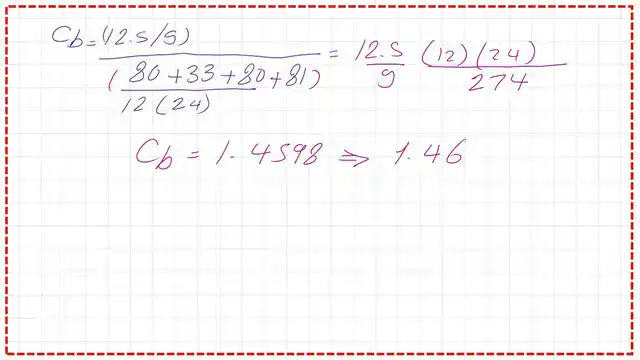 Cb = (12.5/9) / ((80+33+80+81) / 12(24)) = 12.5/9 (12)(24)/274
Cb = 1.4598 ⇒ 1.46